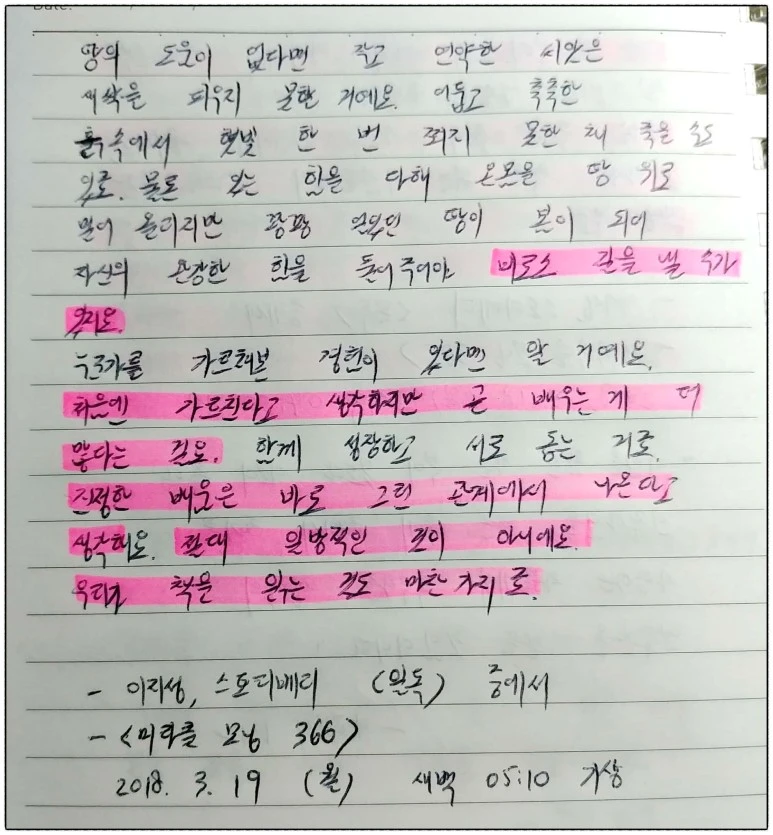 Date:
땅의 도움이 없다면 작고 연약한 씨앗은
새싹을 피우지 못할 거예요. 어둡고 축축한
흙 속에서 햇빛 한 번 쬐지 못한 채 죽을 수도
있고요. 물론 있는 힘을 다해 온몸을 땅 위로
밀어 올리지만 꽝꽝 얼었던 땅이 봄이 되어
자신의 온강한 힘을 들어주어야 비로소 길을 낼 수가
있지요.
누군가를 가르쳐본 경험이 있다면 알 거예요.
처음엔 가르친다고 생각하지만 곧 배우는 게 더
많다는 걸요. 함께 성장하고 서로 돕는 거죠.
진정한 배움은 바로 그런 관계에서 나온다고
생각해요. 절대 일방적인 것이 아니에요.
우리가 책을 읽는 것도 마찬가지로.
- 이지성, 스토리베리 (일독) 중에서
- <미라클 모닝 366>
2018. 3. 19 (월) 새벽 05:10 기상